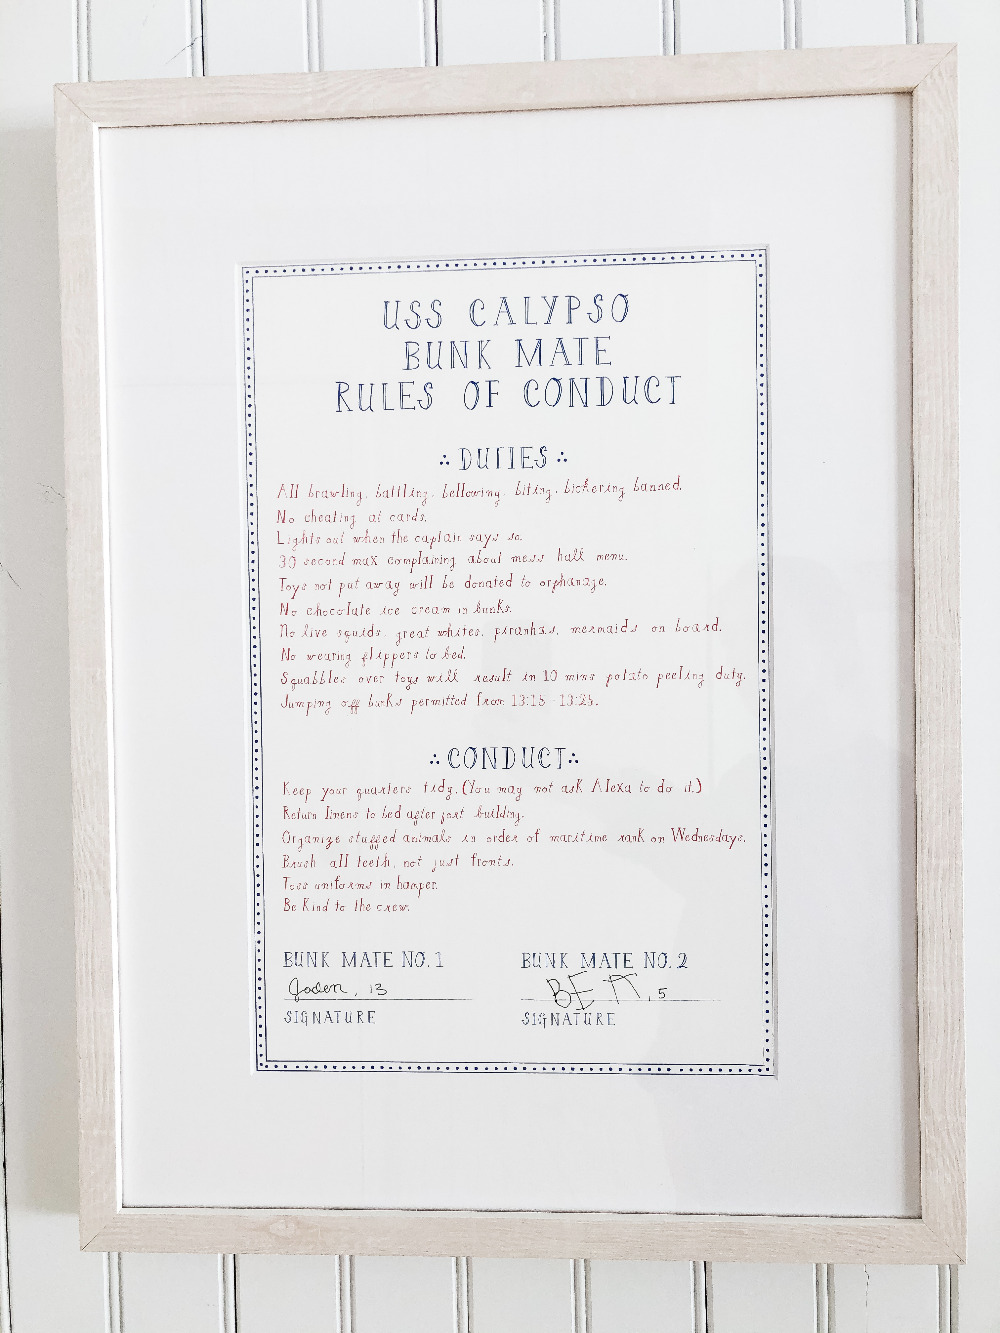 USS CALYPSO
BUNK MATE
RULES OF CONDUCT
DUTIES
All brawling, battling, bellowing, biting, bickering banned.
No cheating at cards.
Lights out when the captain says so.
30 second max complaining about mess hall menu.
Toys not put away will be donated to orphanage.
No chocolate ice cream in bunks.
No live squids, great whites, piranhas, mermaids on board.
No wearing flippers to bed.
Squabbles over toys will result in 10 mins potato peeling duty.
Jumping off bunks permitted from 13:15 - 13:25.
CONDUCT
Keep your quarters tidy. (You may not ask Alexa to do it.)
Return linens to bed after fort building.
Organize stuffed animals in order of maritime rank on Wednesdays.
Brush all teeth, not just fronts.
Toss uniforms in hamper.
Be kind to the crew.
BUNK MATE NO. 1 BUNK MATE NO. 2
Jaden, 13 BETT, 5
SIGNATURE SIGNATURE